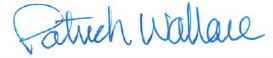 Patrick Wallace